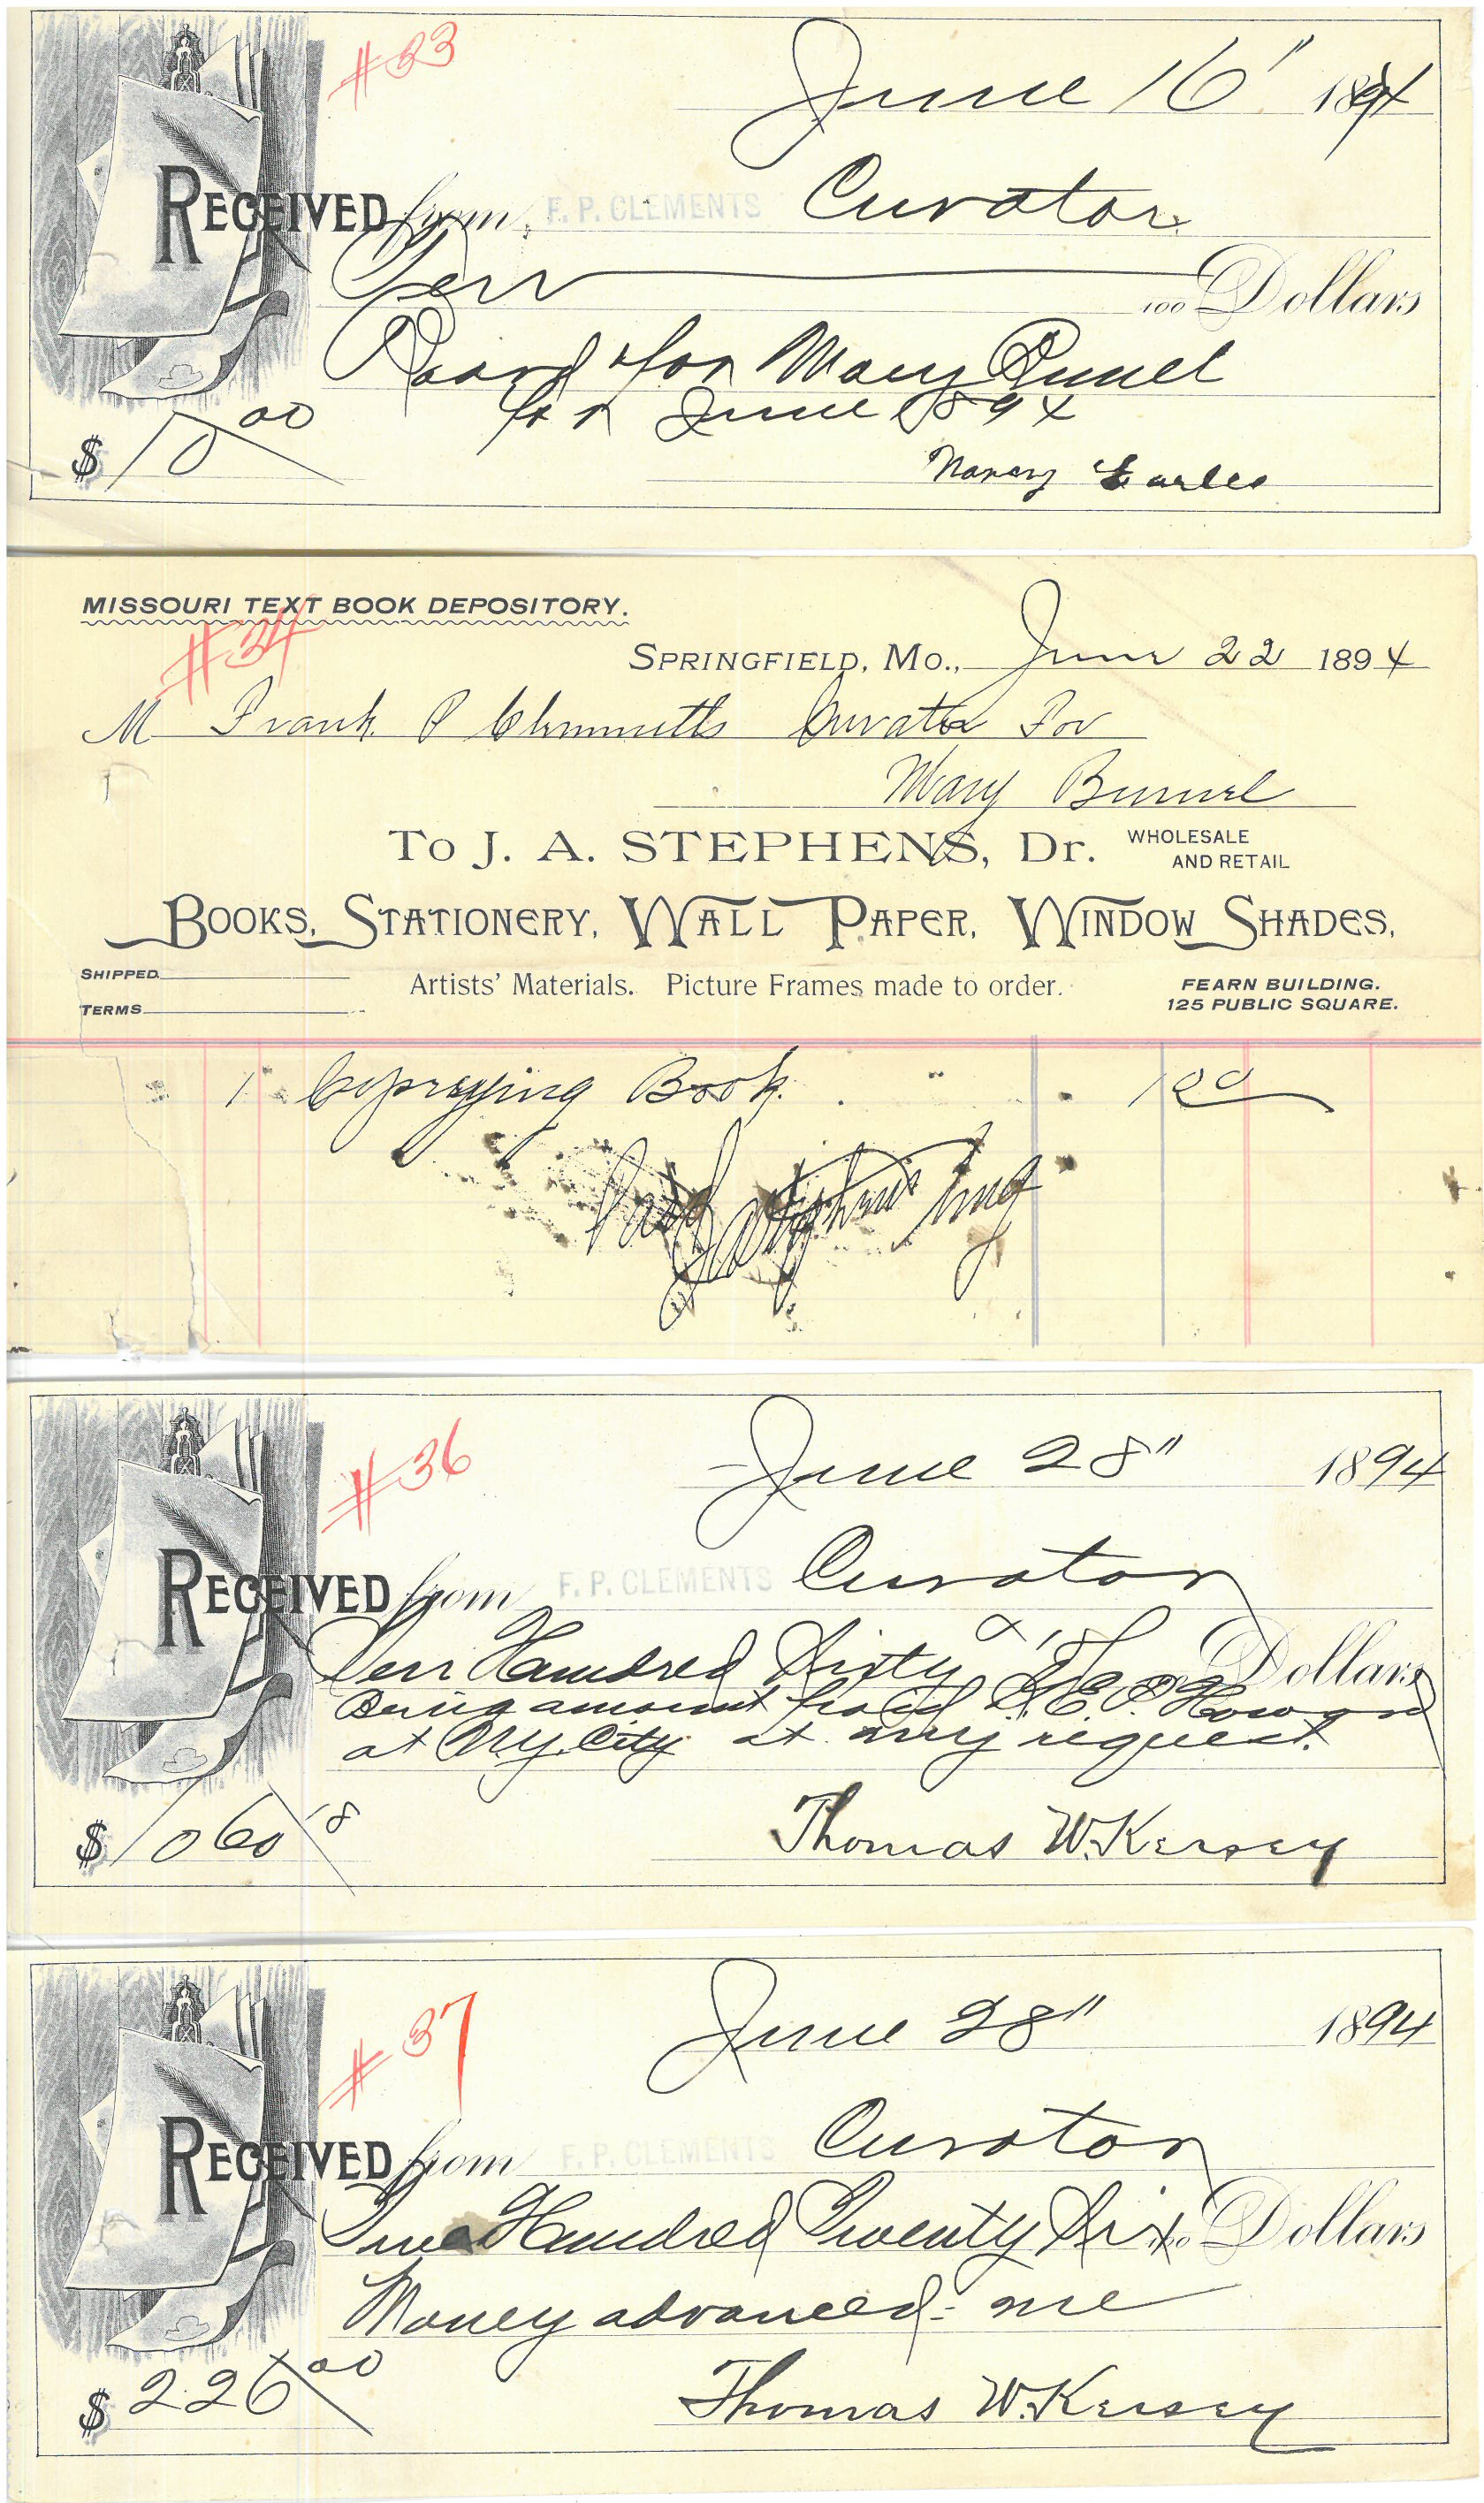 #33
June 16" 1894
RECEIVED from F. P. CLEMENTS Curator
Ten 100 Dollars
Board for Mary Bunel
for June 1894
$10 00
Nancy Earles
MISSOURI TEXT BOOK DEPOSITORY.
#34
SPRINGFIELD, MO., June 22 1894
M Frank P Clemmetts Curator For
Mary Bunnel
TO J. A. STEPHENS, Dr. WHOLESALE AND RETAIL
BOOKS, STATIONERY, WALL PAPER, WINDOW SHADES,
SHIPPED Artists' Materials. Picture Frames made to order. FEARN BUILDING.
TERMS 125 PUBLIC SQUARE.
1 Book 1 00
Paid
#36
June 28" 1894
RECEIVED from F. P. CLEMENTS Curator
Ten Hundred Sixty & 18 Dollars
Being amount paid E. Howard
at N.Y. City at my request.
$1060 18
Thomas W. Kersey
#37
June 28" 1894
RECEIVED from F. P. CLEMENTS Curator
Two Hundred Twenty Six Dollars
Money advanced me
$226 00
Thomas W. Kersey